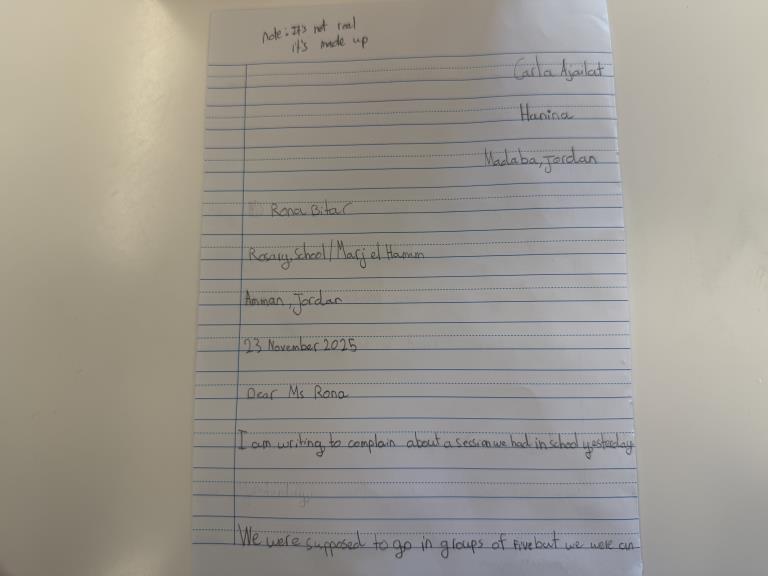 Note: It's not real
it's made up
Carla Ajailat
Hanina
Madaba, Jordan
Rona Bitar
Rosary School / Marj el Hamam
Amman, Jordan
23 November 2025
Dear Ms Rona
I am writing to complain about a session we had in school yesterday
We were supposed to go in groups of five but we were an